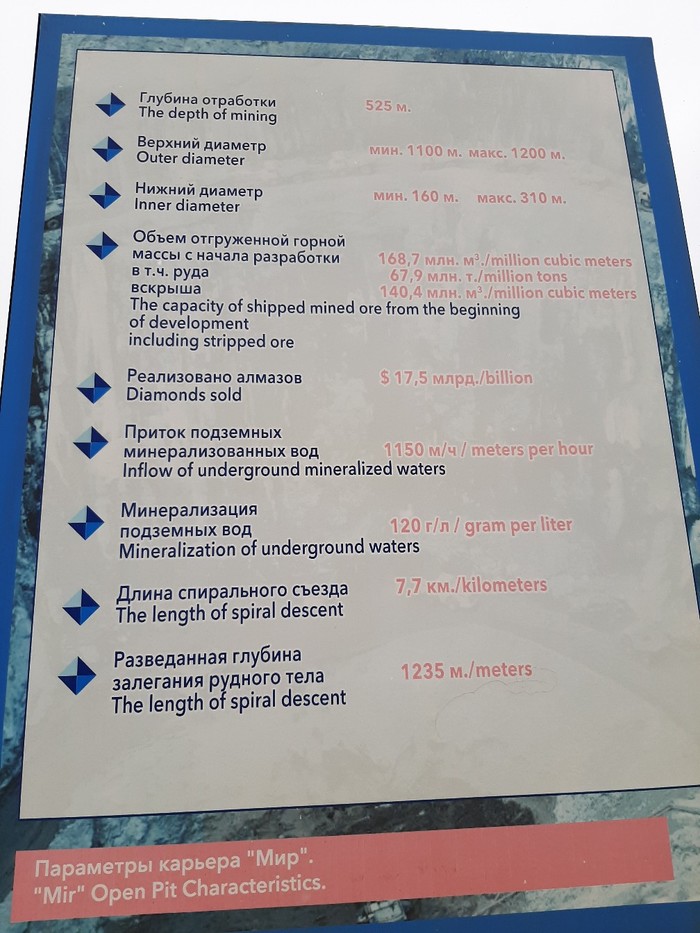 Глубина отработки
The depth of mining
525 м.
Верхний диаметр
Outer diameter
мин. 1100 м. макс. 1200 м.
Нижний диаметр
Inner diameter
мин. 160 м. макс. 310 м.
Объем отгруженной горной
массы с начала разработки
168,7 млн. м³./million cubic meters
в т.ч. руда
67,9 млн. т./million tons
вскрыша
140,4 млн. м³./million cubic meters
The capacity of shipped mined ore from the beginning
of development
including stripped ore
Реализовано алмазов
Diamonds sold
$ 17,5 млрд./billion
Приток подземных
минерализованных вод
1150 м/ч / meters per hour
Inflow of underground mineralized waters
Минерализация
подземных вод
120 г/л / gram per liter
Mineralization of underground waters
Длина спирального съезда
The length of spiral descent
7,7 км./kilometers
Разведанная глубина
залегания рудного тела
1235 м./meters
The length of spiral descent
Параметры карьера "Мир".
"Mir" Open Pit Characteristics.